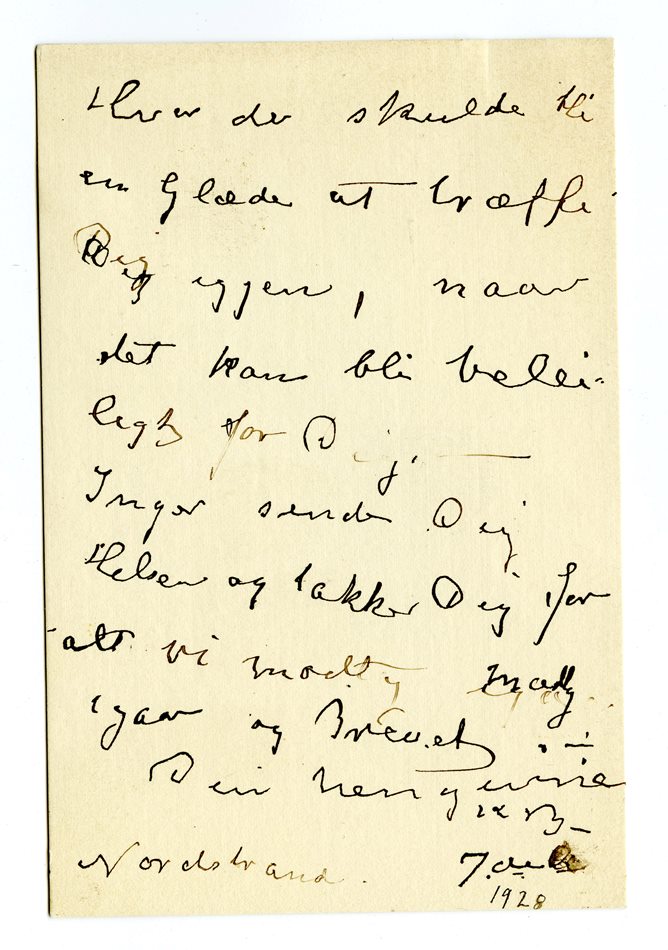 Hvor der skulde bli
en Glæde at træffe
Dig igjen, naar
det kan bli belei-
ligt for Dig. —
Inger sender Dig
Helsen og takker Dig for
alt vi modtog
igaar og Brevet
Din hengivne
Nordstrand. 7. de
1928